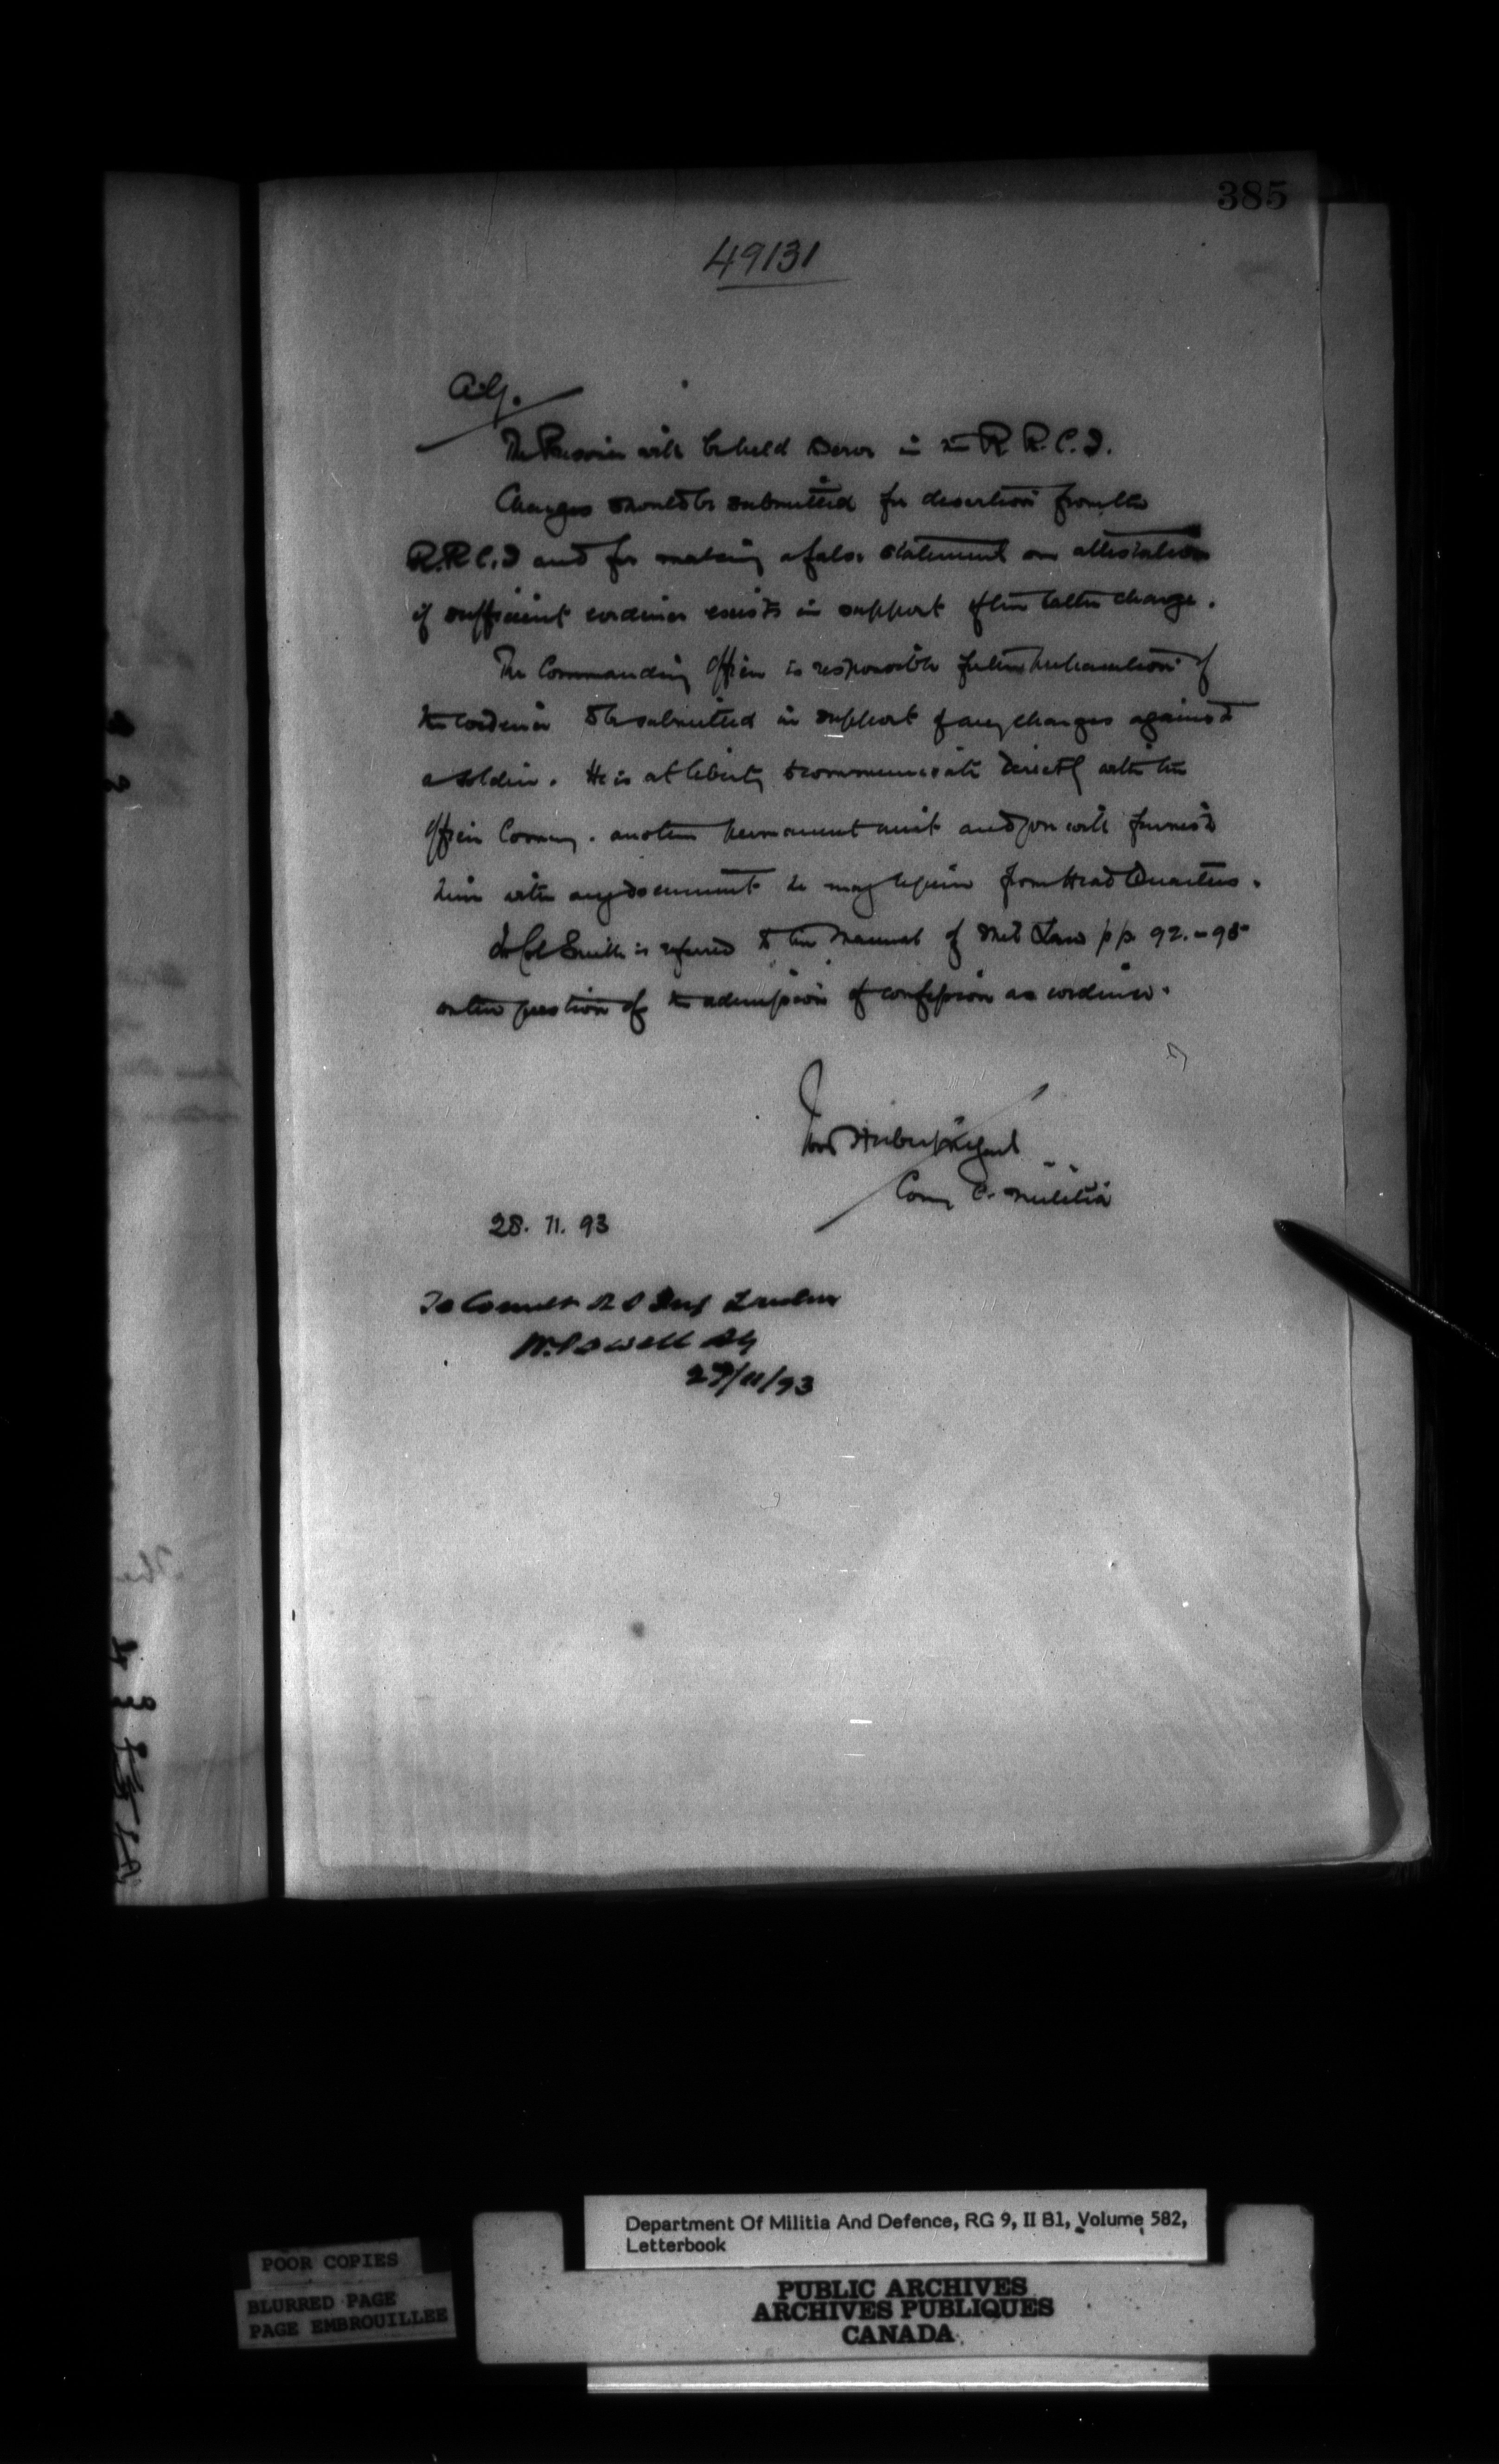 385
49131
A.G.
The Prisoner will be held to serve in the R. R. C. I.
Charges should be submitted for desertion from the
R.R.C.I and for making a false statement on attestation
if sufficient evidence exists in support of the latter charge.
The Commanding Officer is responsible for the preparation of
the evidence to be submitted in support of any charges against
a soldier. He is at liberty to communicate direct with the
Officer Comng. another permanent unit and you will furnish
him with any document he may require from Head Quarters.
Lt Col Smith is referred to the Manual of Mil Law pp. 92.-95
on the question of the admission of confession as evidence.
Ivor Herbert M Genl
Comg C. Militia
28. 11. 93
To Comdt R S Inf London
W. Powell AG
/11/93
Department Of Militia And Defence, RG 9, II B1, Volume 582,
Letterbook
POOR COPIES
BLURRED PAGE
PAGE EMBROUILLEE
PUBLIC ARCHIVES
ARCHIVES PUBLIQUES
CANADA